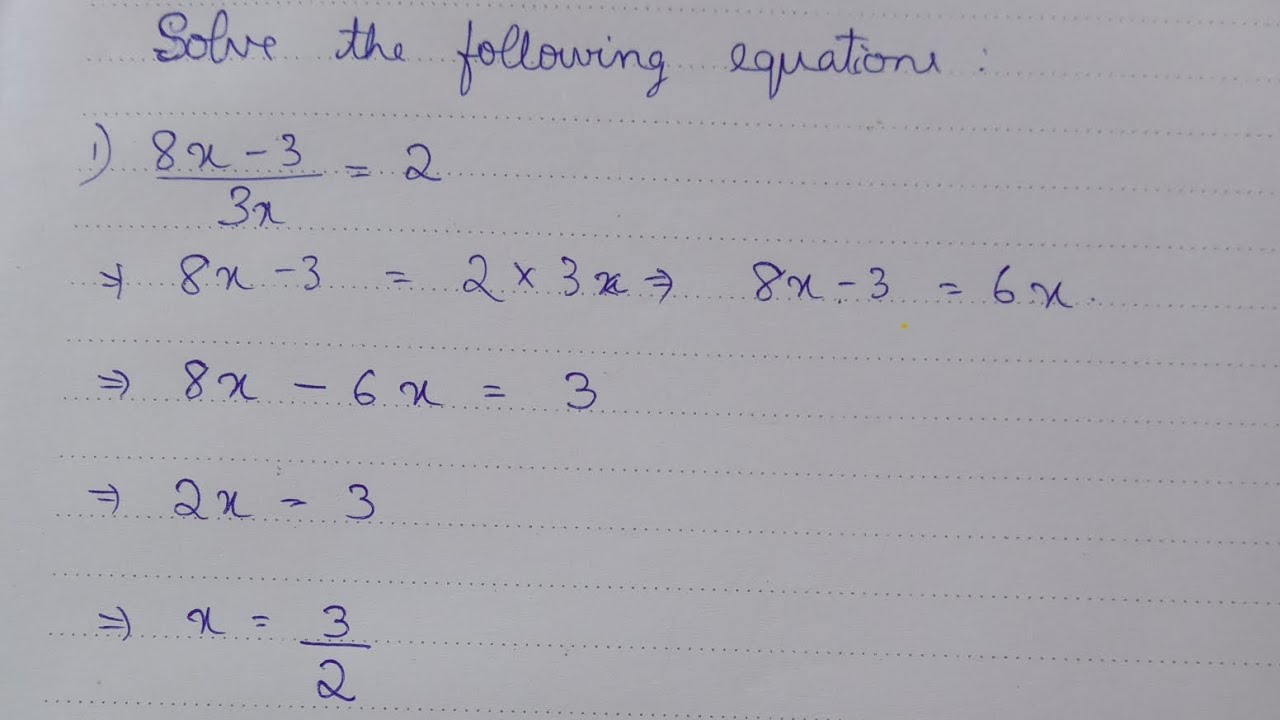 Solve the following equations :
1) 8x - 3 / 3x = 2
⇒ 8x - 3 = 2 × 3x ⇒ 8x - 3 = 6x.
⇒ 8x - 6x = 3
⇒ 2x = 3
⇒ x = 3 / 2